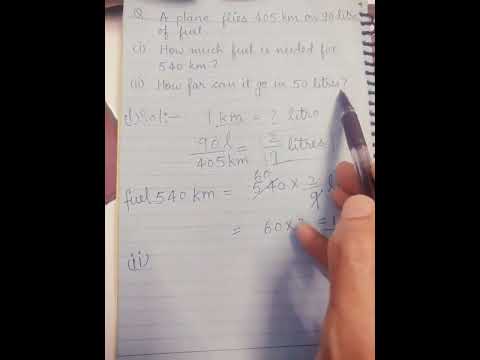 Q A plane flies 405 km on 90 litre
of fuel.
(i) How much fuel is needed for
540 km?
(ii) How far can it go in 50 litres?
(i) Sol:- 1 km = ? litre
90 l / 405 km = 2 / litres
fuel 540 km = 540 60 × 2/9 l
= 60×2 =
(ii)